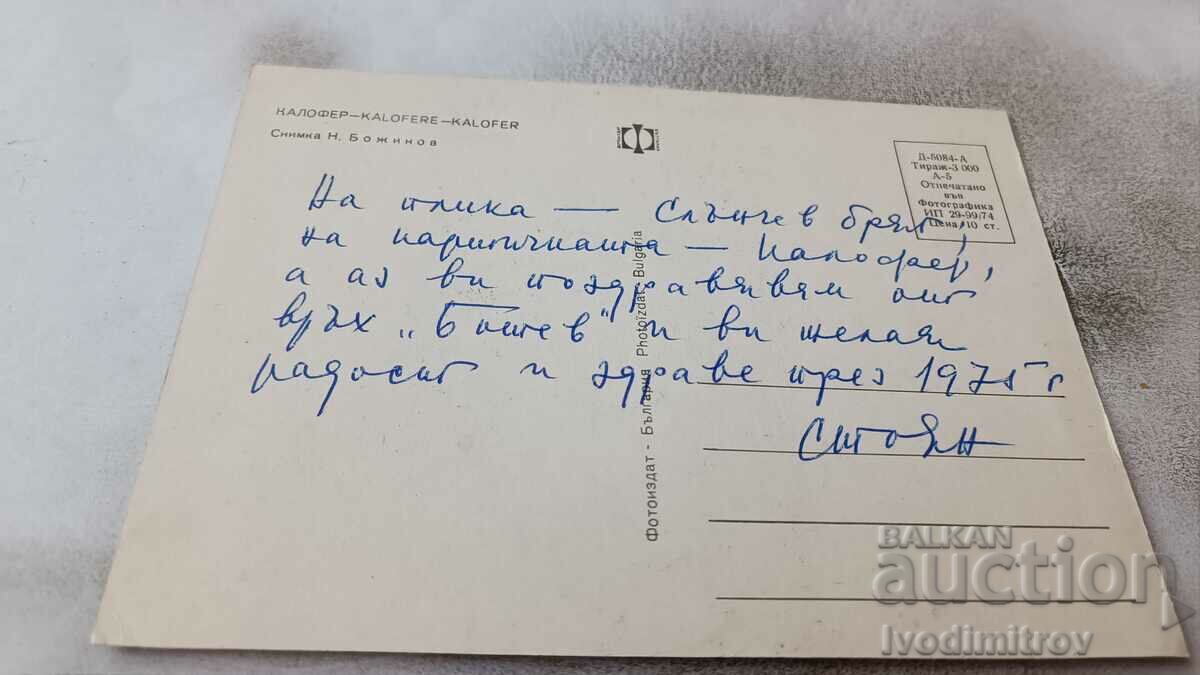 КАЛОФЕР–KALOFERE–KALOFER
Снимка Н. Божинов
Д-5084-А
Тираж-3 000
А-5
Отпечатано
във
Фотографика
ИП 29-99/74
Цена 10 ст.
На плика — Слънчев бряг,
на картичката — Калофер,
а аз ви поздравявам от
връх „Ботев" и ви желая
радост и здраве през 1975 г
Стоян
Фотоиздат - България Photoizdat - Bulgaria
BALKAN
auction
Ivodimitrov